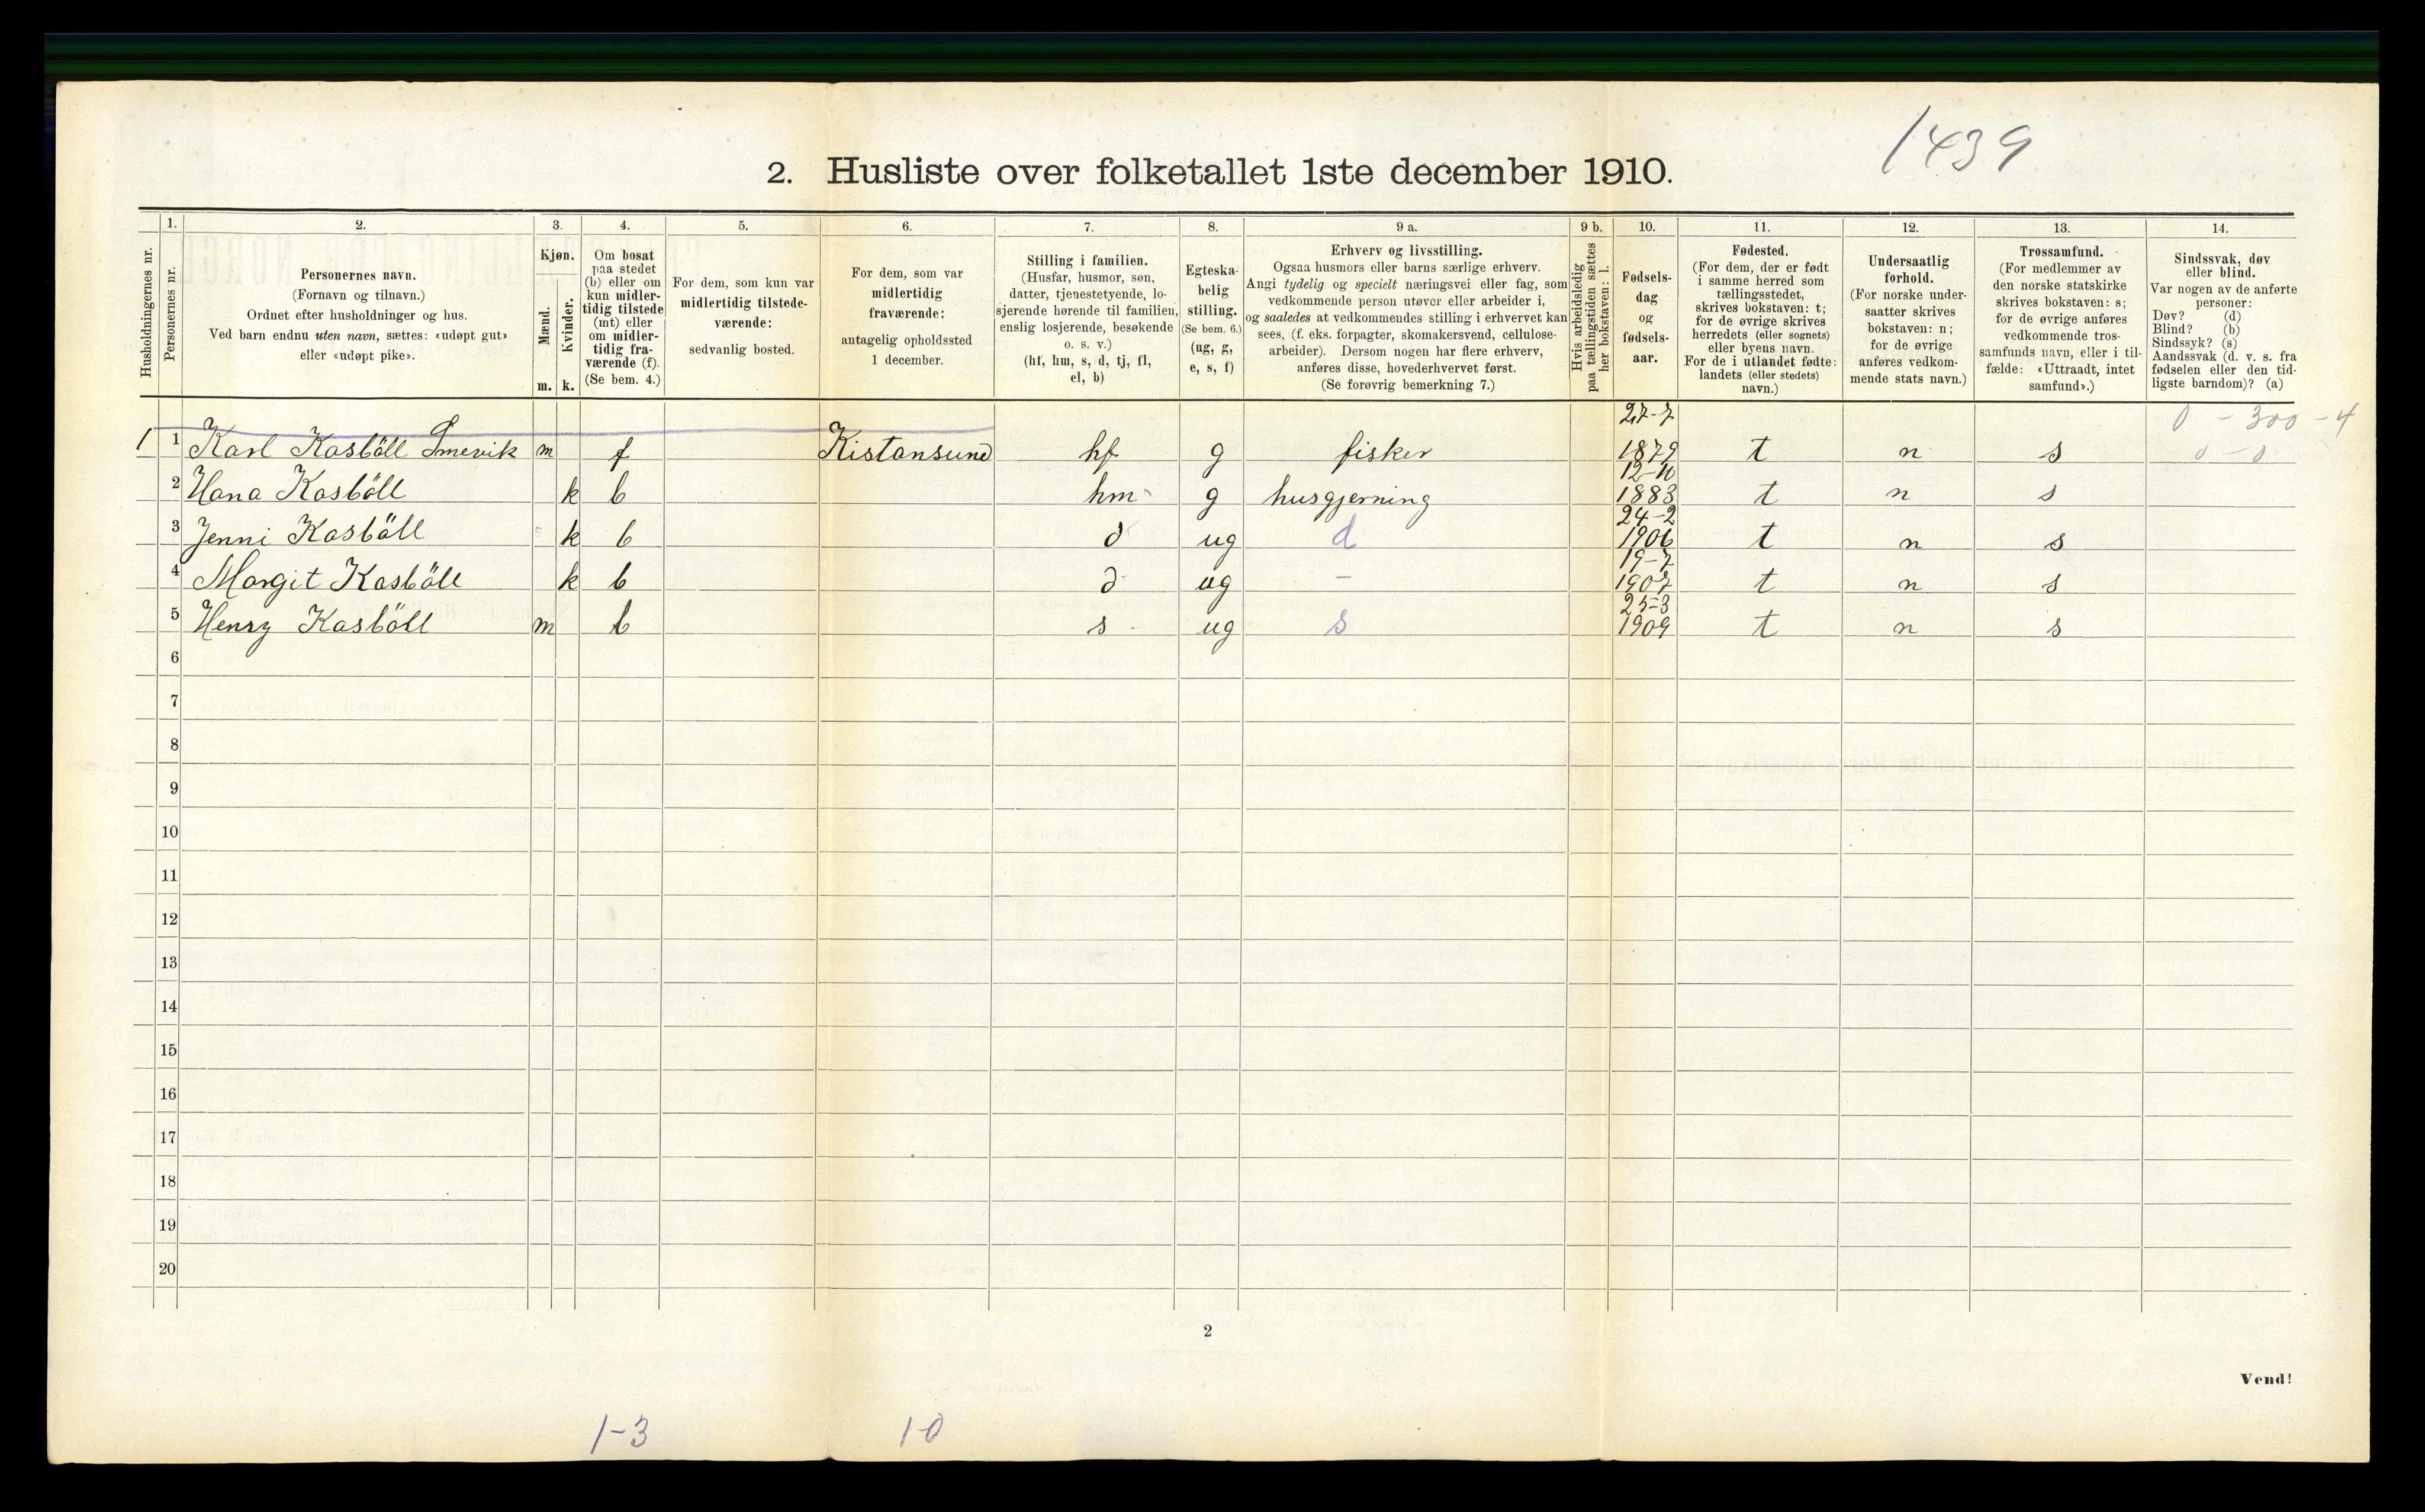 1439
2. Husliste over folketallet 1ste december 1910.
Husholdningernes nr.
1.
Personernes nr.
2.
Personernes navn.
(Fornavn og tilnavn.)
Ordnet efter husholdninger og hus.
Ved barn endnu uten navn, sættes: «udøpt gut»
eller «udøpt pike».
3.
Kjøn.
Mænd.
m.
Kvinder.
k.
4.
Om bosat
paa stedet
(b) eller om
kun midler-
tidig tilstede
(mt) eller
om midler-
tidig fra-
værende (f).
(Se bem. 4.)
5.
For dem, som kun var
midlertidig tilstede-
værende:
sedvanlig bosted.
6.
For dem, som var
midlertidig
fraværende:
antagelig opholdssted
1 december.
7.
Stilling i familien.
(Husfar, husmor, søn,
datter, tjenestetyende, lo-
sjerende hørende til familien,
enslig losjerende, besøkende
o. s. v.)
(hf, hm, s, d, tj, fl,
el, b)
8.
Egteska-
belig
stilling.
(Se bem. 6.)
(ug, g,
e, s, f)
9 a.
Erhverv og livsstilling.
Ogsaa husmors eller barns særlige erhverv.
Angi tydelig og specielt næringsvei eller fag, som
vedkommende person utøver eller arbeider i,
og saaledes at vedkommendes stilling i erhvervet kan
sees, (f. eks. forpagter, skomakersvend, cellulose-
arbeider). Dersom nogen har flere erhverv,
anføres disse, hovederhvervet først.
(Se forøvrig bemerkning 7.)
9 b.
Hvis arbeidsledig
paa tællingstiden sættes
her bokstaven: l.
10.
Fødsels-
dag
og
fødsels-
aar.
11.
Fødested.
(For dem, der er født
i samme herred som
tællingsstedet,
skrives bokstaven: t;
for de øvrige skrives
herredets (eller sognets)
eller byens navn.
For de i utlandet fødte:
landets (eller stedets)
navn.)
12.
Undersaatlig
forhold.
(For norske under-
saatter skrives
bokstaven: n;
for de øvrige
anføres vedkom-
mende stats navn.)
13.
Trossamfund.
(For medlemmer av
den norske statskirke
skrives bokstaven: s;
for de øvrige anføres
vedkommende tros-
samfunds navn, eller i til-
fælde: «Uttraadt, intet
samfund».)
14.
Sindssvak, døv
eller blind.
Var nogen av de anførte
personer:
Døv? (d)
Blind? (b)
Sindssyk? (s)
Aandssvak (d. v. s. fra
fødselen eller den tid-
ligste barndom)? (a)
0 - 300 - 4
0 - 0
1 1 Karl Kasböll Smevik m f Kistansund hf g fisker 27-7 1879 t n s
2 Hana Kasböll k b hm g husgjerning 12-11 1883 t n s
3 Jenni Kasböll k b d ug d 24-2 1906 t n s
4 Margit Kasböll k b d ug - 19-7 1907 t n s
5 Henry Kasböll m b s ug s 25-3 1909 t n s
6
7
8
9
10
11
12
13
14
15
16
17
18
19
20
2
Vend!
1-3 1-0